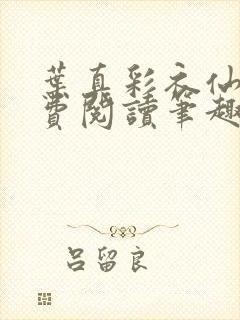 葉真彩衣仙
費閱讀筆趣
呂留良